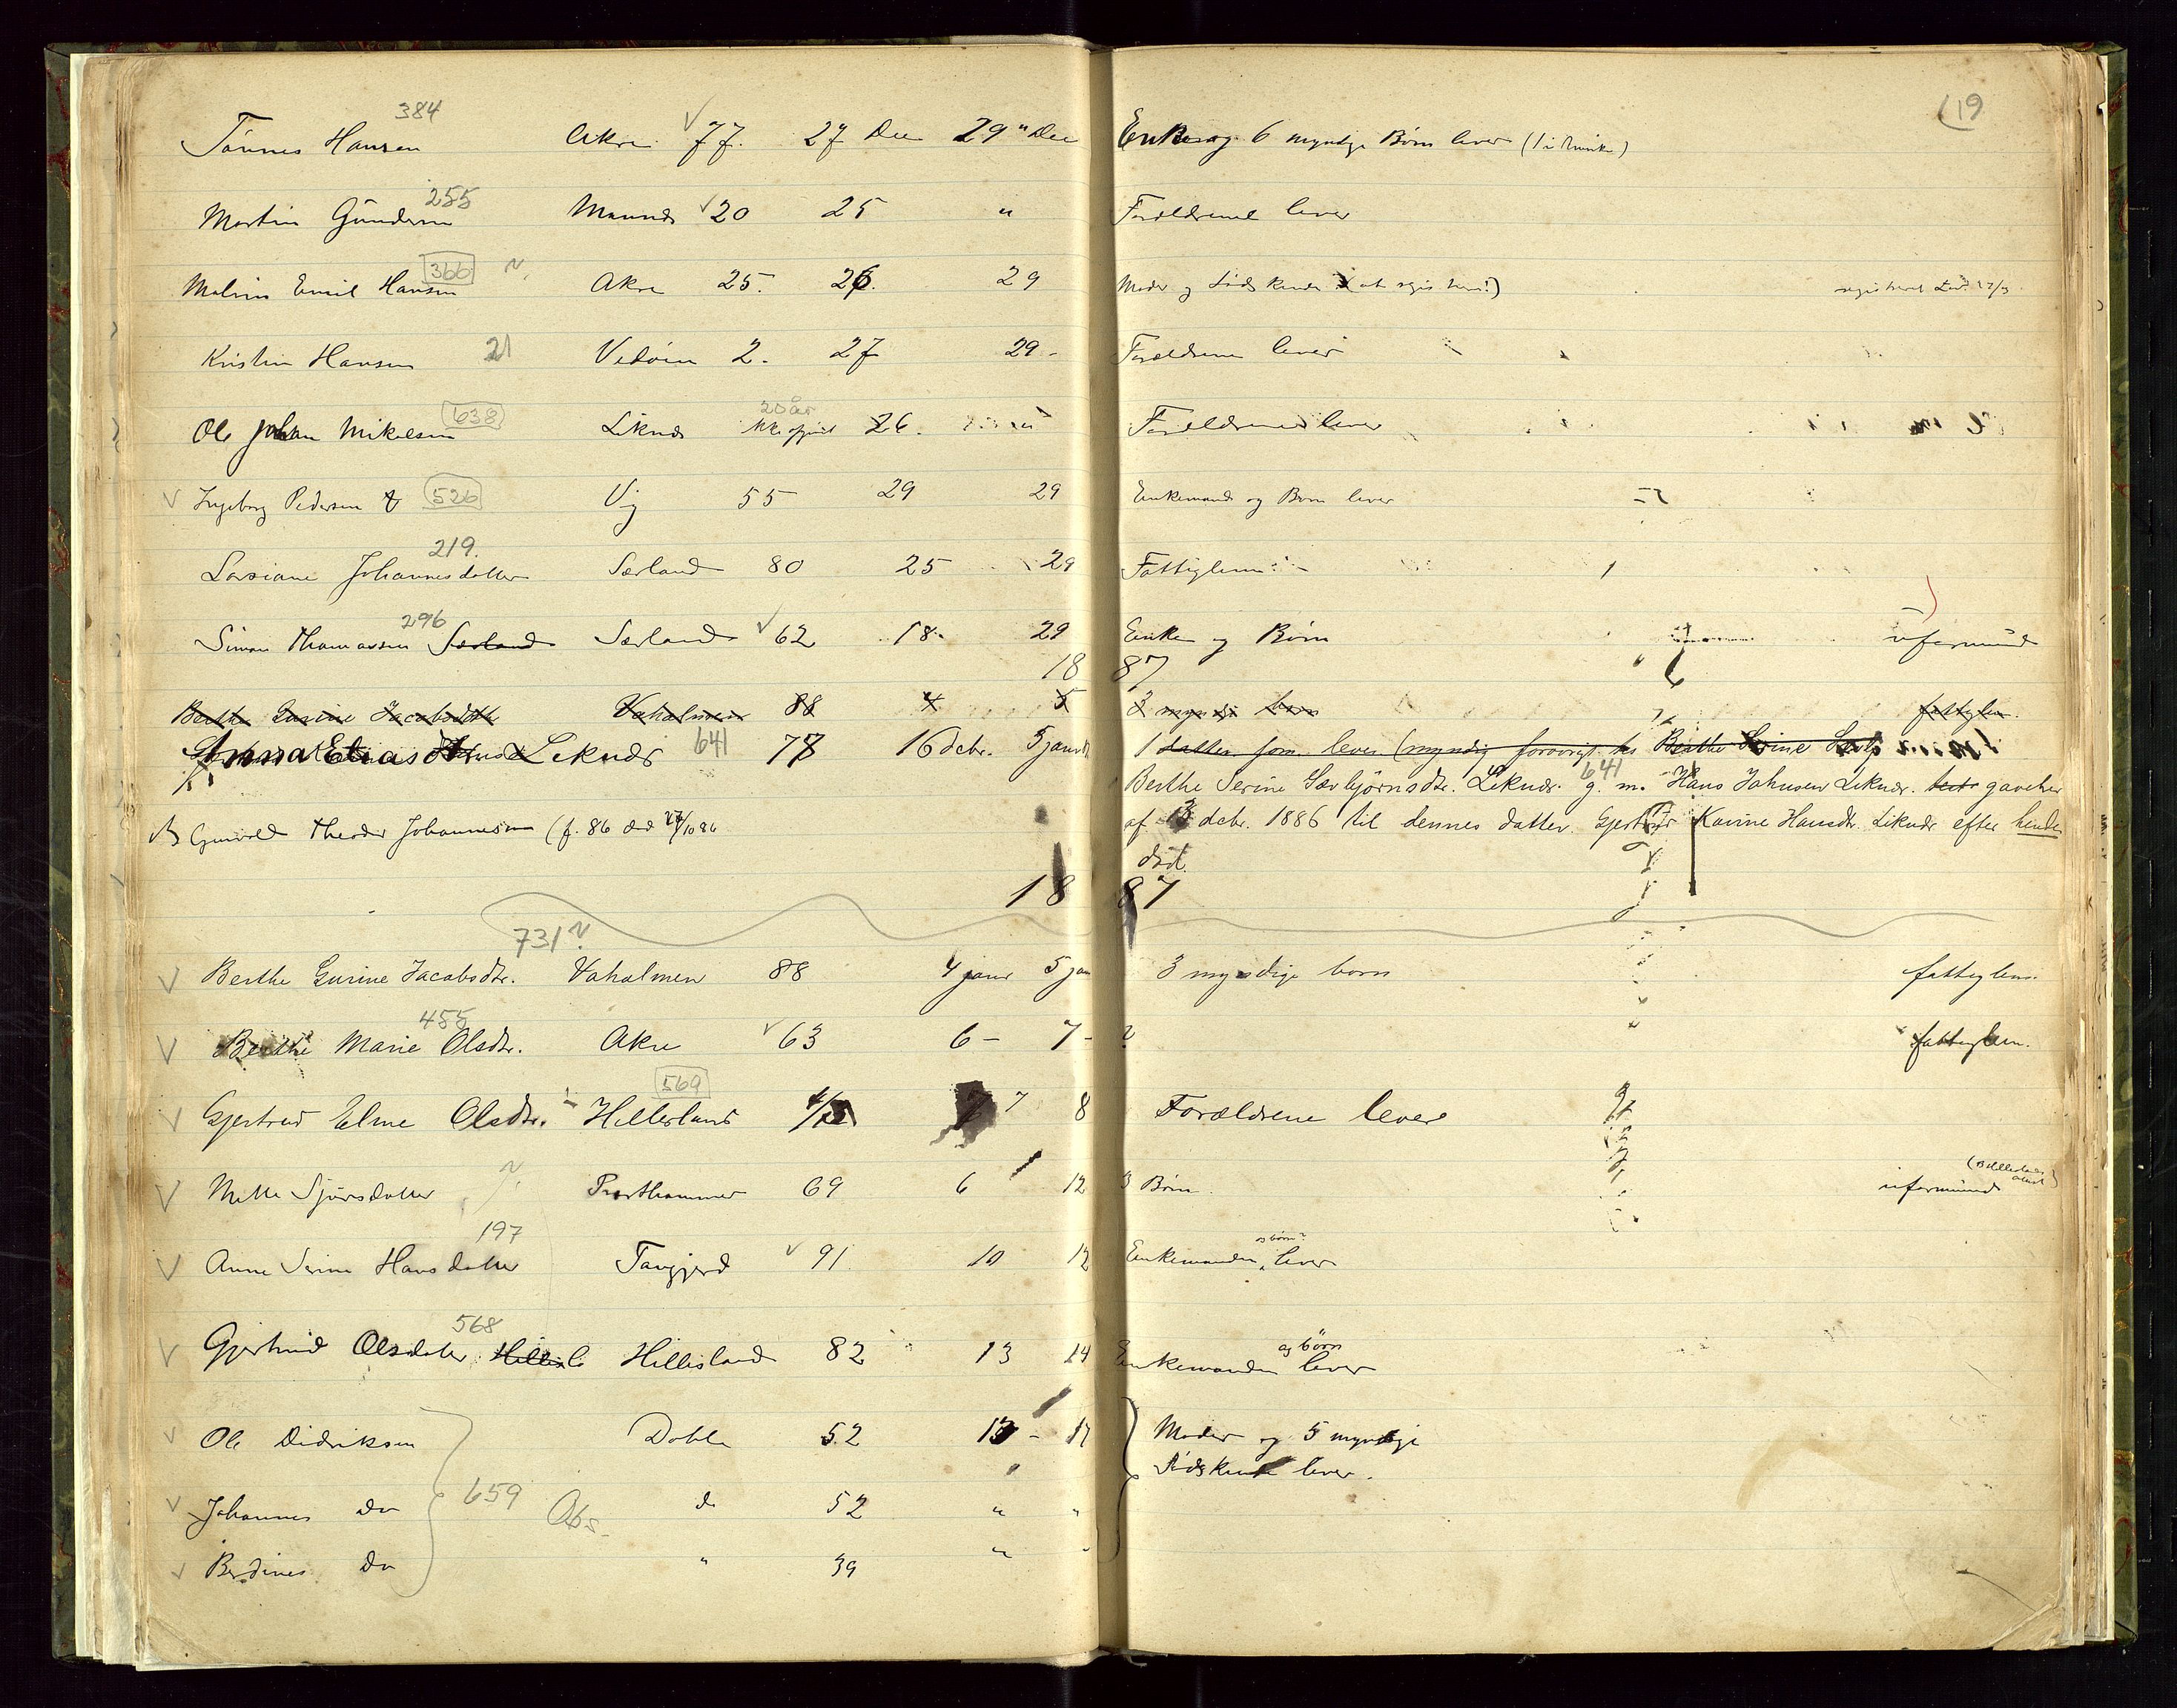 (19
384
Tönnes Hansen Akre ✓ 77. 27 Dec 29 " Dec Enke og 6 myndige Börn lever
255
Martin Gundersen Munnds ✓ 20 25 " Forældrene lever
366
Malvin Emil Hansen Akre 25. 26. 29 Moder og Södskende registreret
Kristin Hansen 21 Vedöen 2. 27 29 - Forældrene lever
638 20 år
Ole Johan Mikalsen Liknes ikke opgivet 26. " Forældrene lever
✓ Ingeborg Pedersen 526 Vig 55 29 29 Enkemand og Börn lever
219.
Larsiane Johannesdatter Sørland 80 25 29 Fattiglem
296
Simon Thomassen Sørland Sørland ✓ 62 18. 29 Enke og Börn uformuend
18 87
Berthe Gurine Jacobsdtr Vaholmen 88 4 5 3 myndige børn fattiglem.
Anna Eliasdtr Leknds 641 77 16 dcbr. 5 januar 1 datter som lever (myndig forøvrigt Berthe Serine
Berthe Serine Sørbjørnsdtr. Leknds. 641 g. m. Hans Johnsen Leknds. gavebrev
af 13 dcbr. 1886 til dennes datter Gjertrud Karine Hansdtr. Leknds efter hendes
død.
Gunvald Theodor Johannesen (f. 86 død 27/10 86
18 87
731 ?
✓ Berthe Gurine Jacobsdtr. Vaholmen 88 4 janr 5 jan 3 myndige børn fattiglem.
455
✓ Berthe Marie Olsdtr. Akre ✓ 63 6 - 7 - ? fattiglem.
569
✓ Gjertrud Eline Olsdtr. Hillesland 7 8 Forældrene lever
✓ Mette Sjursdatter Prosthammer 69 6 12 3 Börn. uformuend
197
og börn?
✓ Anne Serine Hansdatter Tangjerd ✓ 91. 10 12 Enkemanden lever
568
og börn
✓ Gjertrud Olsdatter Hillesl Hillesland 82 13 14 Enkemanden lever
✓ Ole Didriksen Dahle 52 13 - 17 Moder og 5 myndige
Södskende lever.
✓ Johannes do 659 Obs. do 52 " "
✓ Berdines do " 39 " "